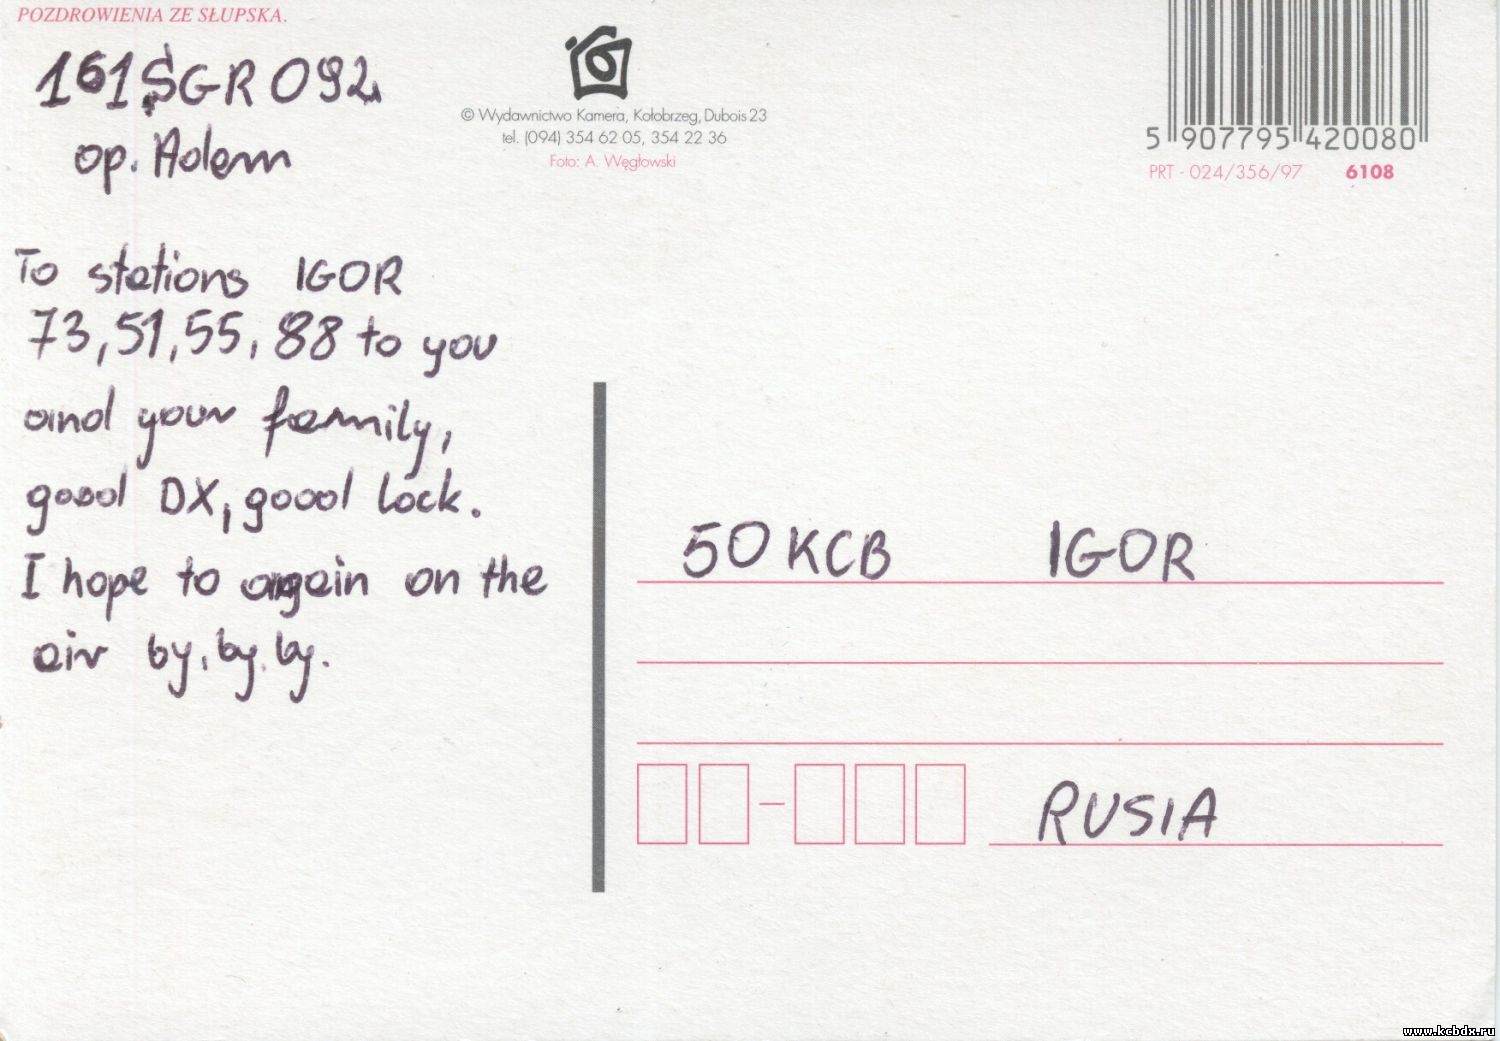 POZDROWIENIA ZE SŁUPSKA.
161SGR092
op. Adam
To stations IGOR
73,51,55, 88 to you
and your family,
good DX, good lock.
I hope to again on the
air by, by, by.
© Wydawnictwo Kamera, Kołobrzeg, Dubois 23
tel. (094) 354 62 05, 354 22 36
Foto: A. Węgłowski
5 907795 420080
PRT - 024/356/97 6108
50 KCB IGOR
RUSIA
www.kcbdx.ru